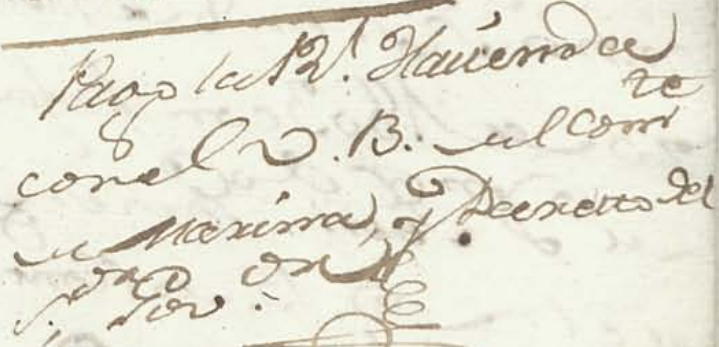 Pago la Rl. Hacienda
con el V. B. del Comte
de Marina, y Decreto del
Sor. Gov.or